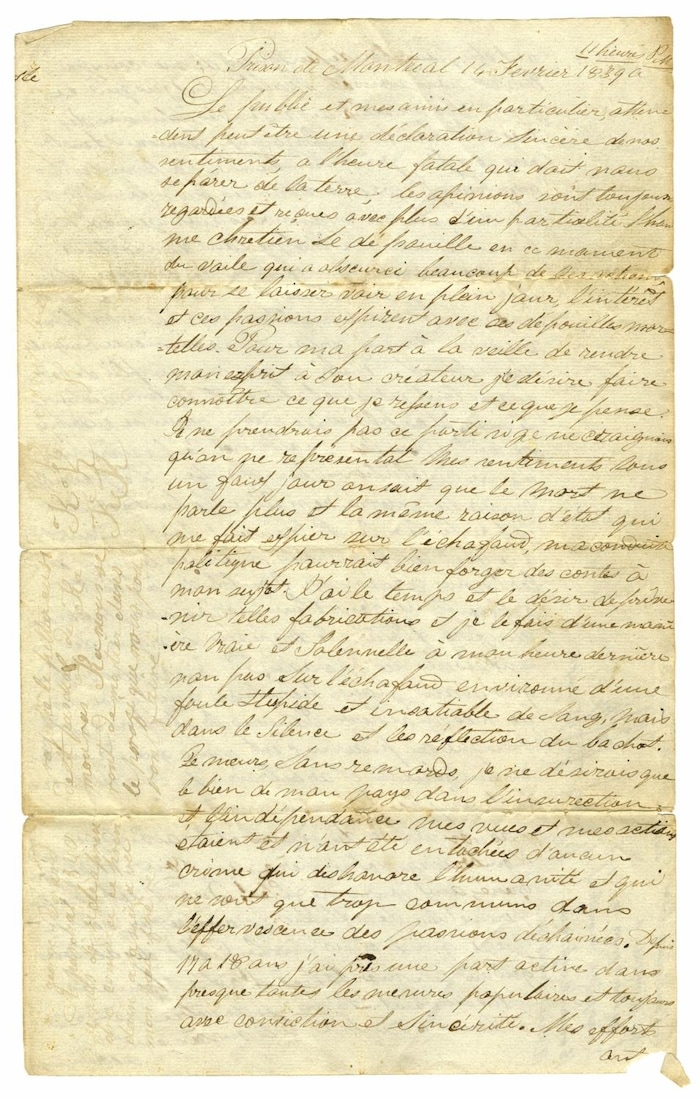 11 heures P.M
Prison de Montréal 14 Fevrier 1839
Le public et mes amis en particulier, atten
-dent peut être une déclaration sincère de nos
sentiments a l'heure fatale qui doit nous
séparer de la terre les opinions sont toujours
regardées et reçues avec plus d'un partialité l'hom
me chretien se dépouille en ce moment
du voile qui a obscurci beaucoup de ses actions
pour se laisser voir en plein jour l'intérêt
et ces passions expirent avec ces depouilles mor
-telles. Pour ma part à la veille de rendre
mon esprit à Son créateur je désire faire
connoître ce que je ressens et ce que je pense.
Je ne prendrais pas ce parti si je ne craignais
qu'on ne représentat mes sentiments sous
un faux jour on sait que le mort ne
parle plus et la même raison d'état qui
me fait expier sur l'échafaud ma conduite
politique pourrait bien forger des contes à
mon sujet. J'ai le temps et le désir de préve
nir telles fabrications et je le fais d'une mani
-ère vraie et Solennelle à mon heure dernière
non pas sur l'échafaud environné d'une
foule stupide et insatiable de Sang, mais
dans le Silence et les reflection du cachot.
Je meurs Sans remords, je ne désirais que
le bien de mon pays dans l'insurection
et l'indépendance mes vues et mes actions
étaient et n'ont été entachées d'aucun
crime qui deshonore l'humanité et qui
ne sont que trop communs dans
l'effervescence des passions dechainées. Depuis
17 a 18 ans j'ai pris une part active dans
presque toutes les mesures populaires et toujours
avec conviction et Sincérité. Mes efforts
ont